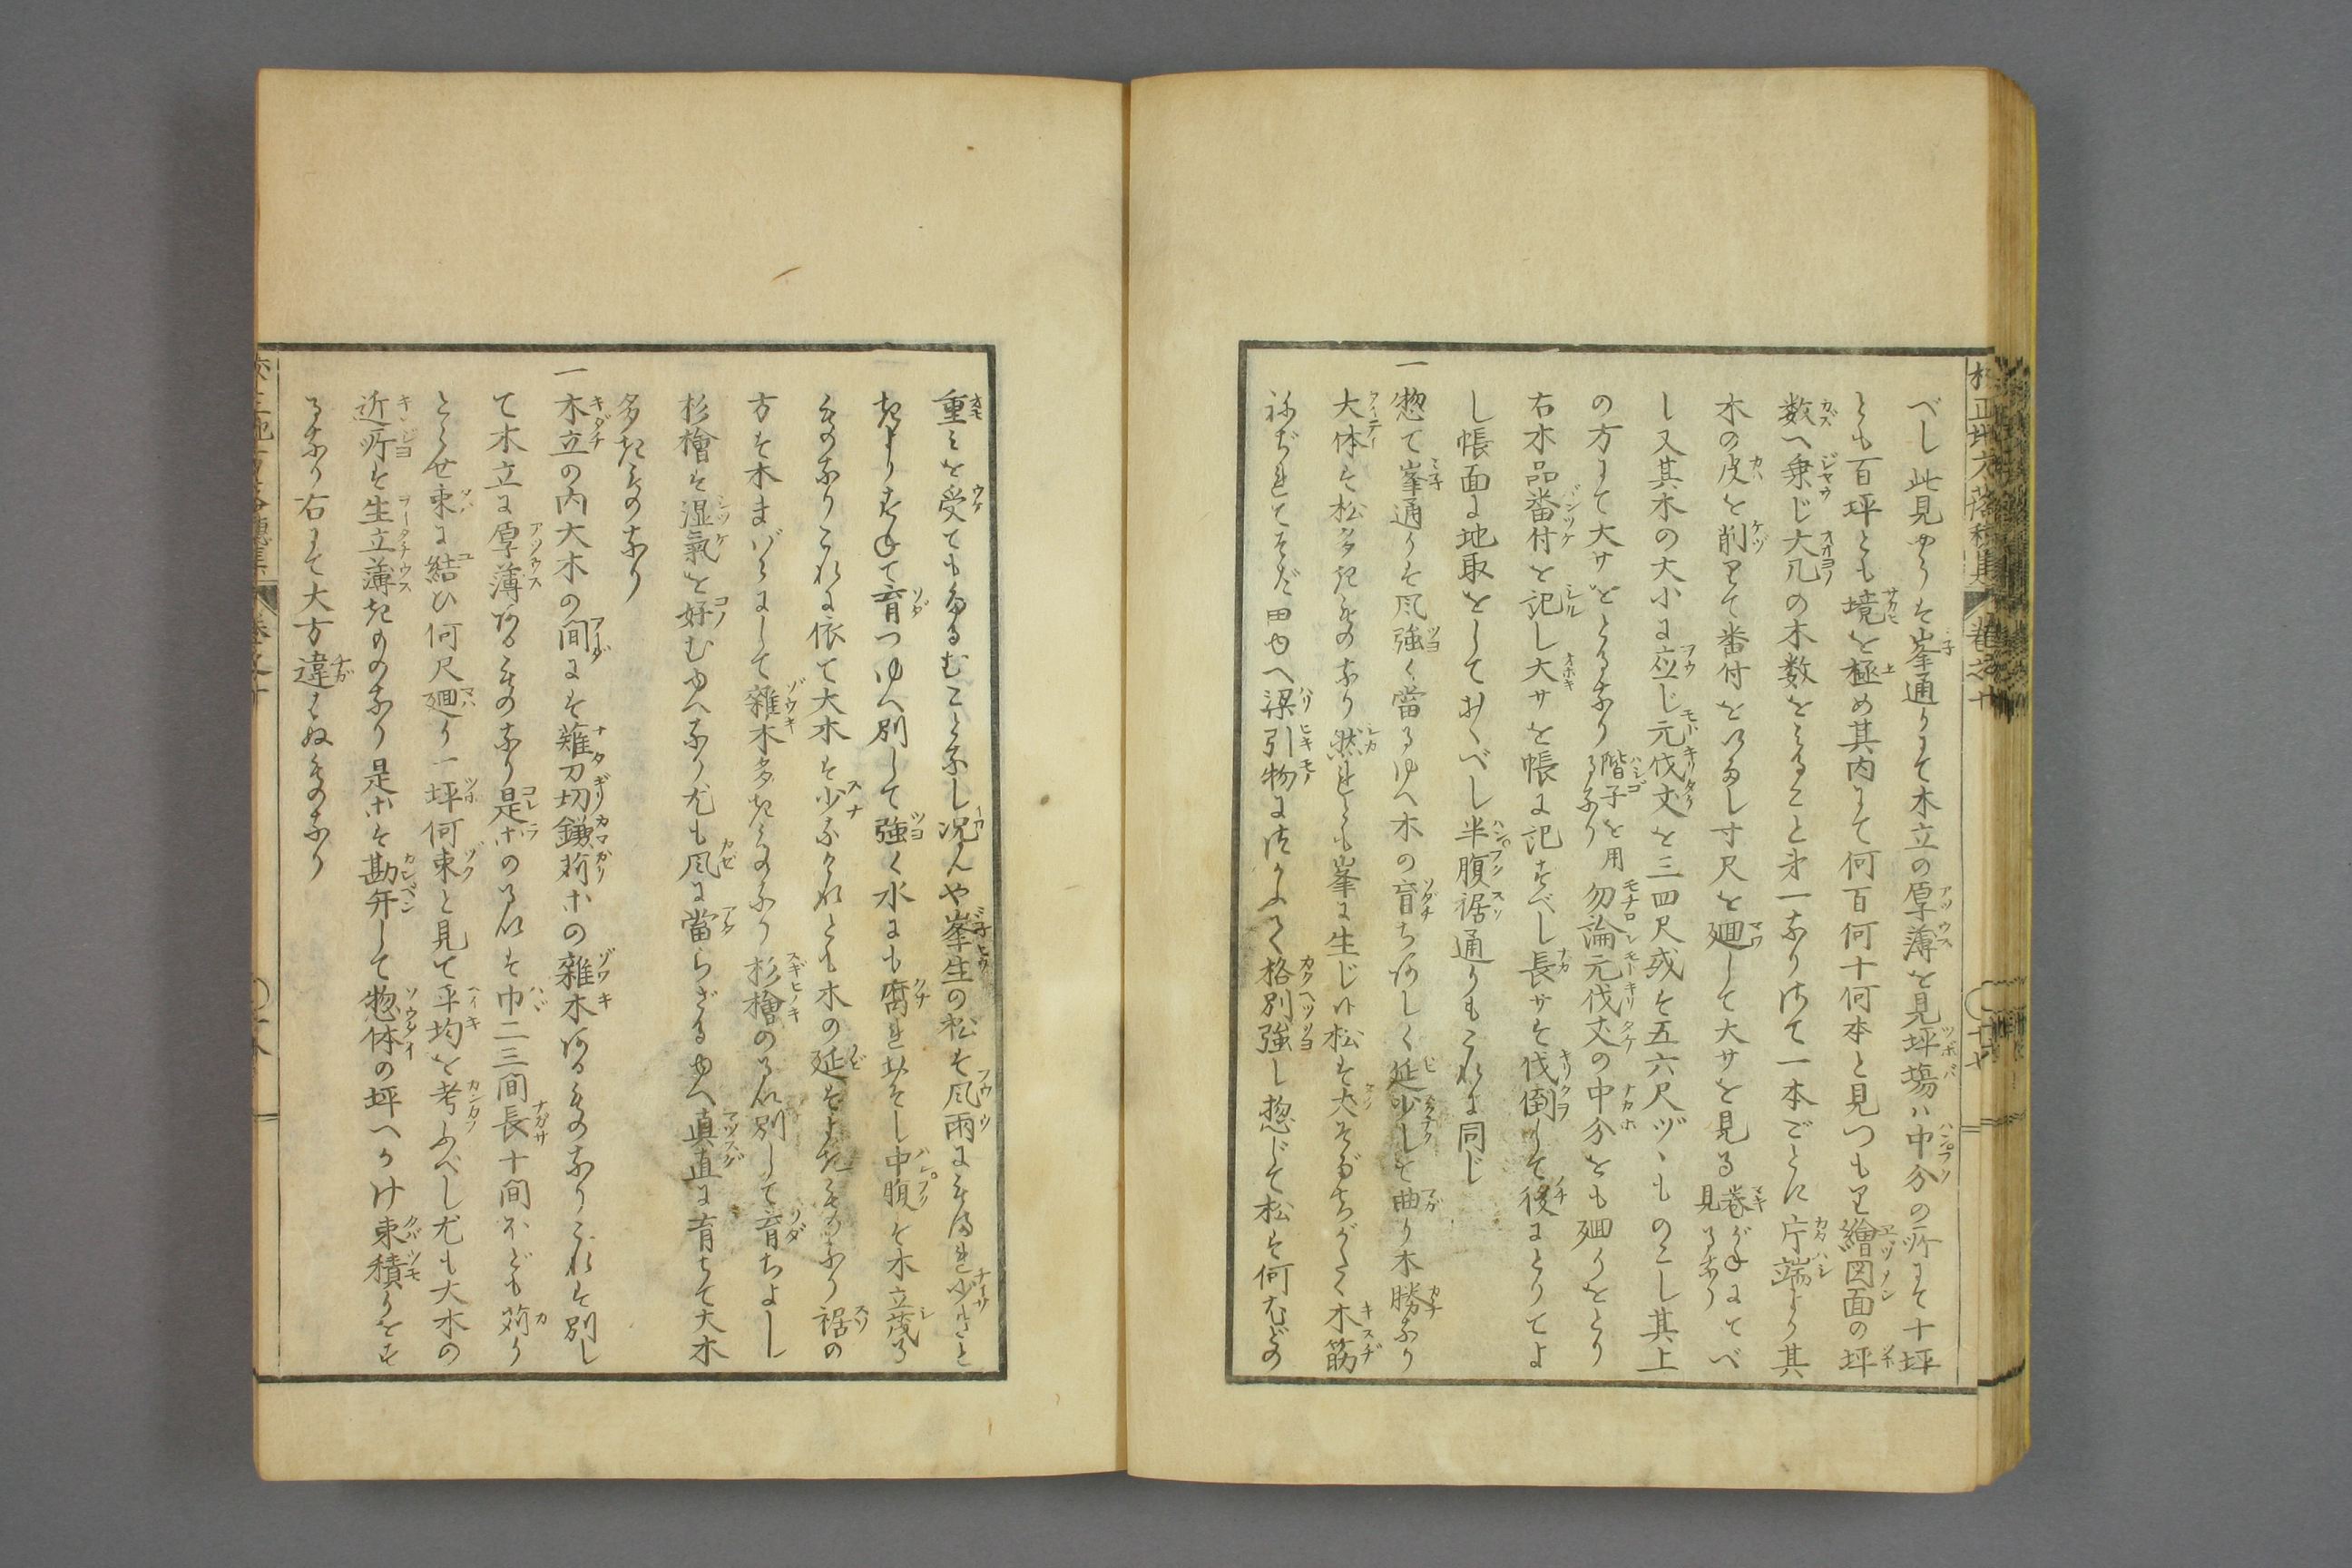 校正地方落穂集 巻之十
べし此見やうは峯通りにて木立の厚薄を見坪塲ハ中分の所にて十坪
とも百坪とも境を極め其内にて何百何十何本と見つもり繪図面の坪
数へ乗じ大凡の木数をしること第一なり扨て一本ごとに片端より其
木の皮を削りて番付をいたし寸尺を廻して大サを見る巻がねにてべ
見るなり
し又其木の大小に应じ元伐丈を三四尺或は五六尺ヅヽものこし其上
の方にて大サをとるなり階子を用
るなり勿論元伐丈の中分をも廻りをとり
右木品番付を記し大サを帳に記すべし長サは伐倒して後にとりてよ
し帳面に地取をしておくべし半腹裾通りもこれに同じ
一惣て峯通りは風強く當るゆへ木の育ち阿しく延少して曲り木勝なり
大体は松多きものなり然れども峯に生じい松は大そだちがたく木筋
祢ぢれてそだ田ゆへ梁引物に遣ふて格別強し惣じて松は何ほどの
重みを受てもたるむことなし况んや峯生の松は風雨にもまれ少ルさと
きよりすねて育つゆへ別して強く水にも腐れがたし中腹は木立茂る
ものなりこれに依て大木は少なけれとも木の延はよきものなり裾の
方は木まばらにして雜木多きものなり杉檜のるい別して育ちよし
杉檜は湿氣を好むゆへなり尤も風に當らざるゆへ真直に育ちて大木
多きものなり
一木立の内大木の間には薙刀切鎌苅ホの雜木阿るものなりこれは別し
て木立に厚薄阿るものなり是ホのるいは巾二三間長十間ホども苅り
とらせ束に結ひ何尺廻り一坪何束と見て平均を考ふべし尤も大木の
近所は生立薄きものなり是ホは勘弁して惣体の坪へかけ束積りをす
るなり右にて大方違はぬものなり